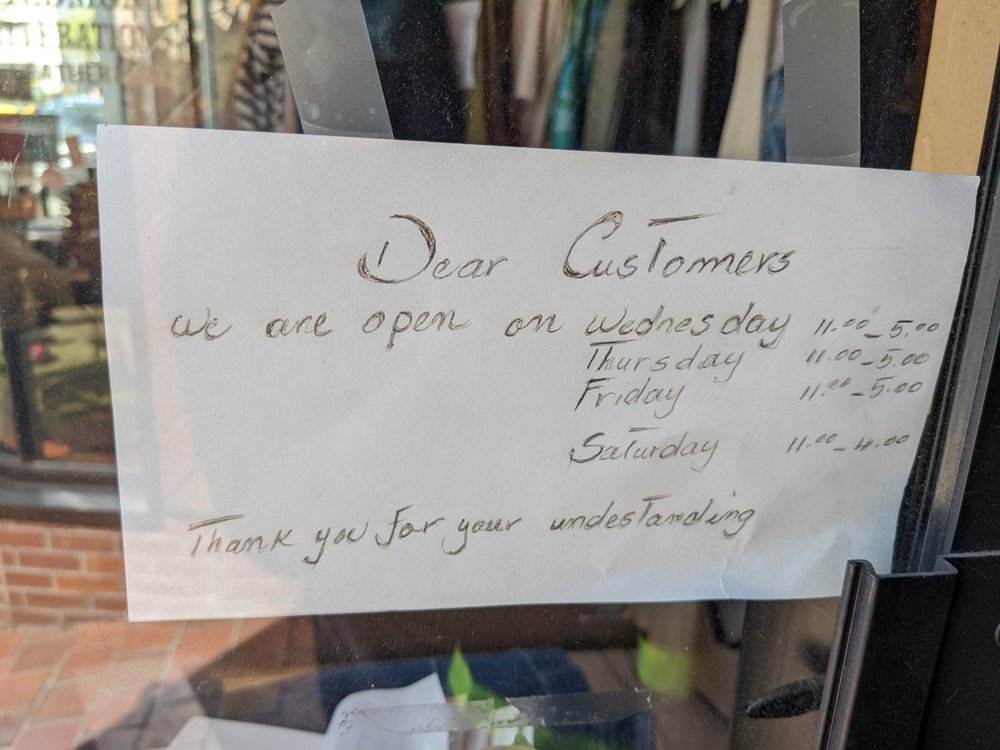 Dear Customers
we are open on Wednesday 11.00-5.00
Thursday 11.00-5.00
Friday 11.00-5.00
Saturday 11.00-4.00
Thank you for your undestanding